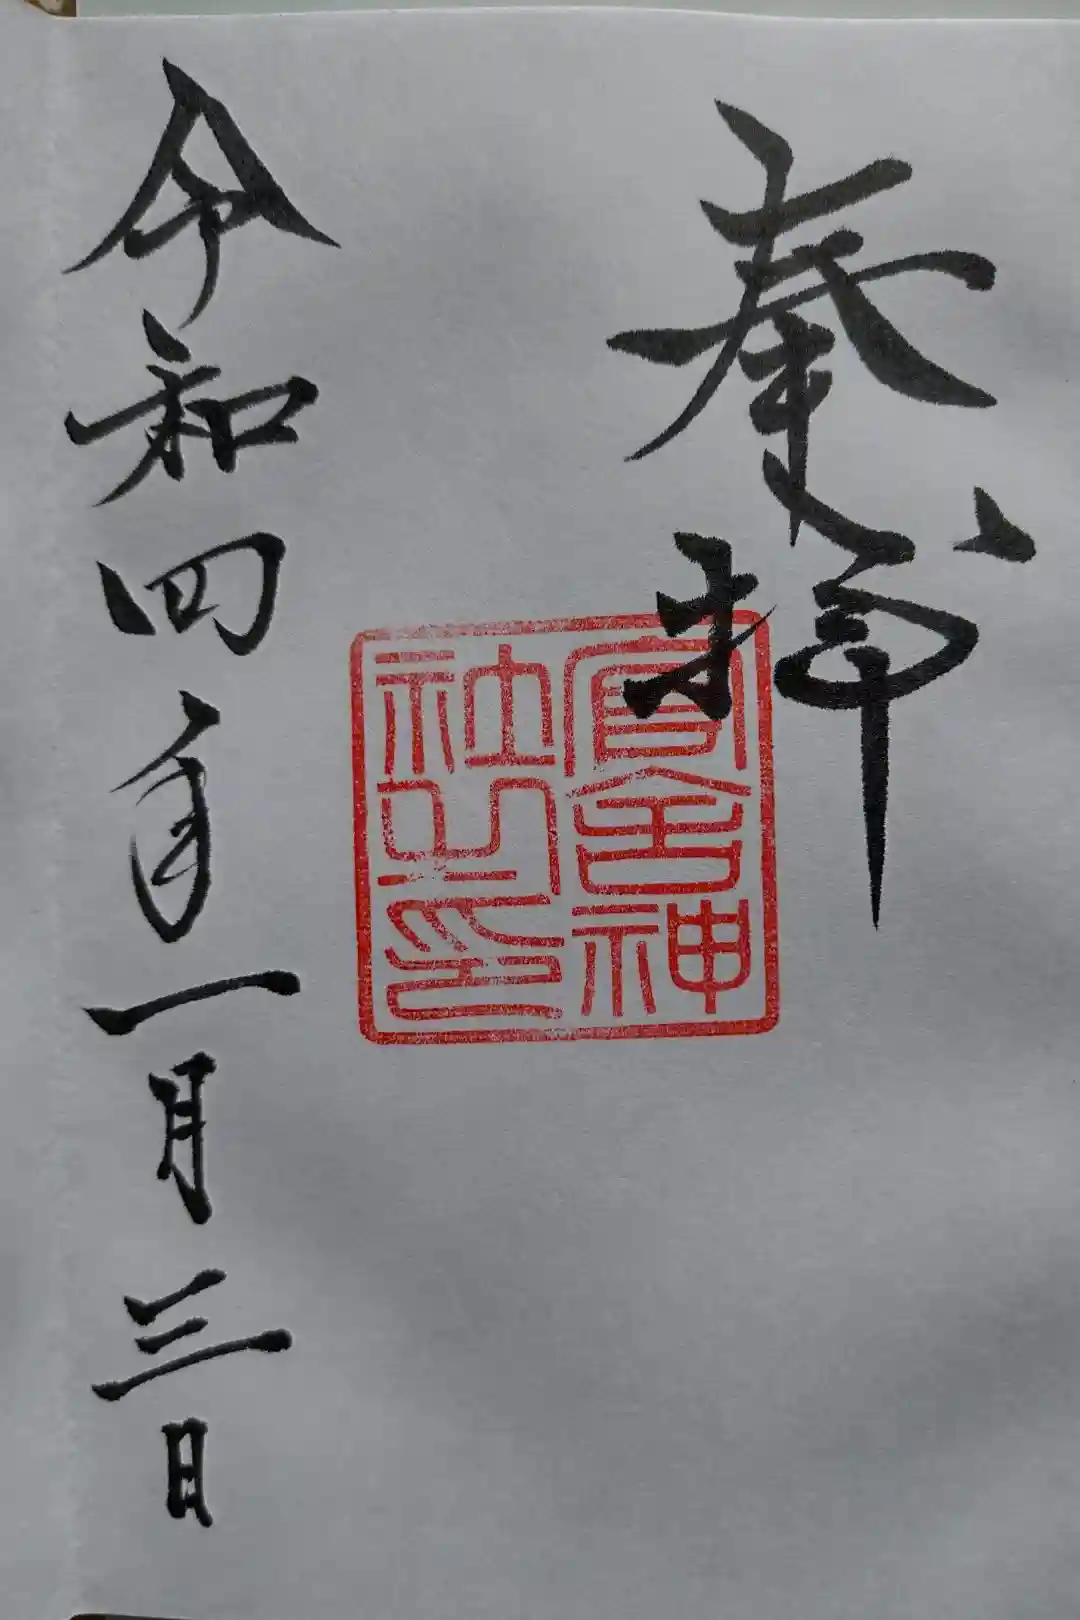 奉拝
神
社之印
令和四年一月三日